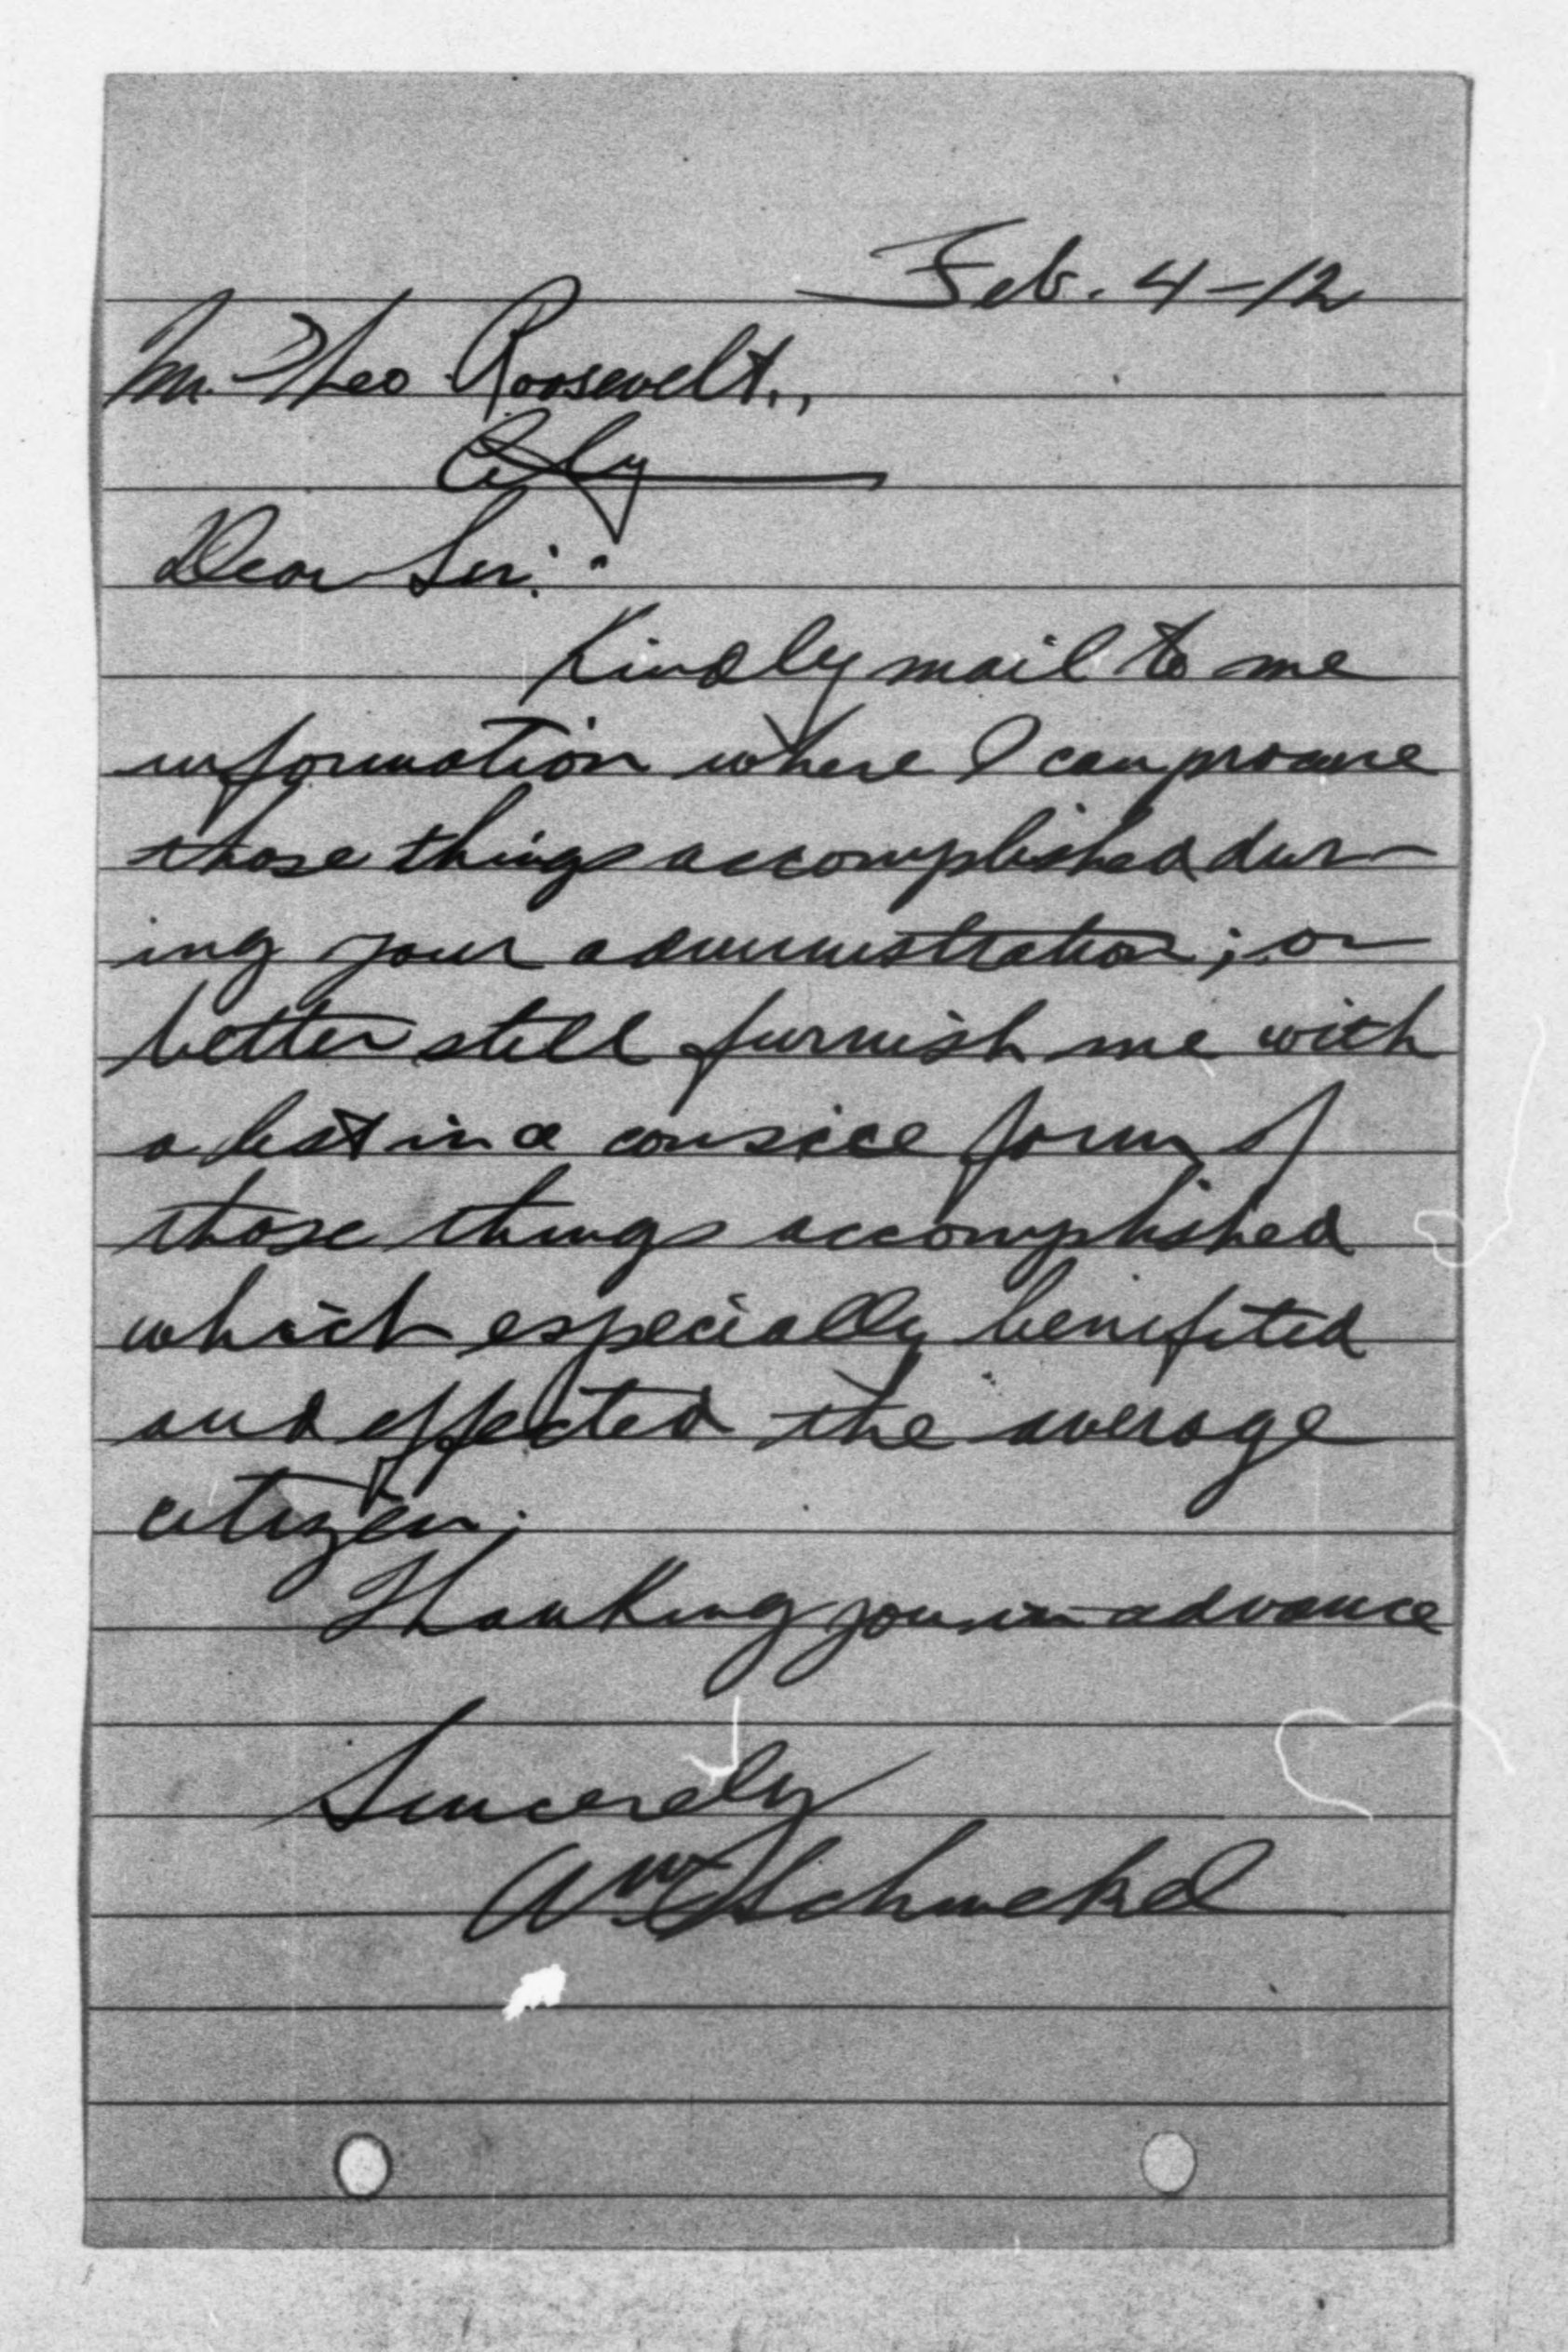 Feb. 4-12
Mr. Theo Roosevelt.,
City
Dear Sir:
Kindly mail to me
information where I can procure
those things accomplished dur-
ing your administration; or
better still furnish me with
a list in a consice form of
those things accomplished
which especially benefited
and effected the average
citizen;
Thanking you in advance
Sincerely
Wm